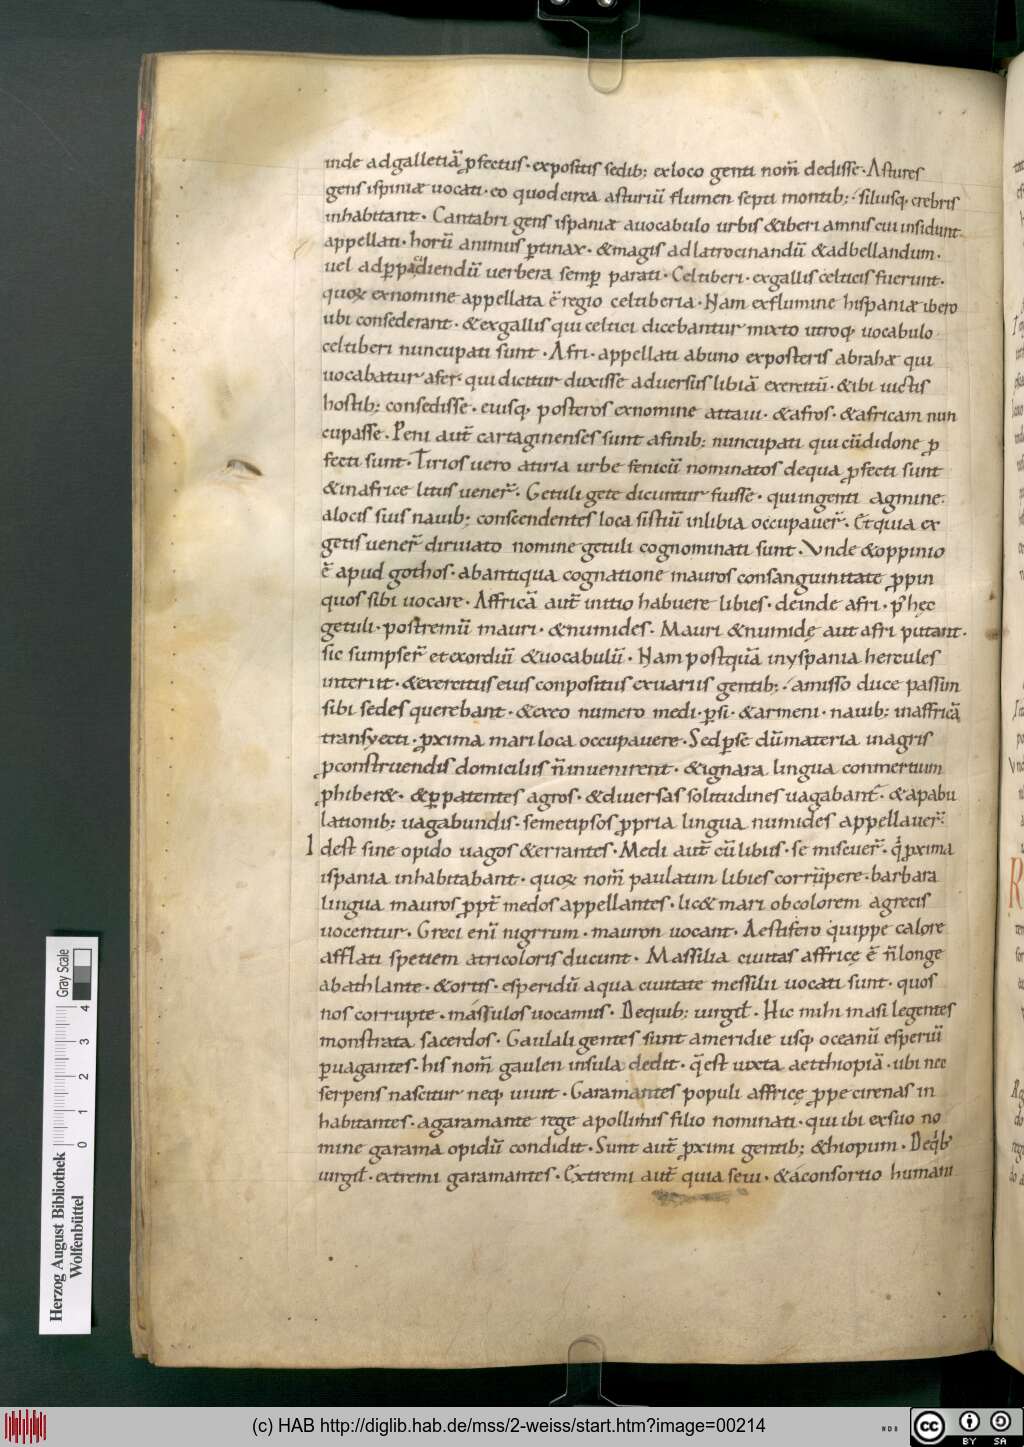 inde adgalletiā ꝓfectus · expositis sedib; exloco genti nom̄ dedisse · Astures
gens ispiniæ uocati · eo quodcirca asturiū flumen septi montib; · siluisq; crebris
inhabitant · Cantabri gens ispaniæ auocabulo urbis &iberi amnis cui insidunt
appellati · horū animus ꝑtinax · &magis adlatrocinandū &adbellandum ·
uel adꝑpaciendiū uerbera semꝑ parati · Celtiberi · exgallis celticis fuerunt ·
quoꝝ exnomine appellata ē regio celtiberia · Nam exflumine hispaniæ ibero
ubi consederant · &exgallis qui celtici dicebantur mixto utroq; uocabulo
celtiberi nuncupati sunt · Afri · appellati abuno exposteris abrahæ qui
uocabatur afer · qui dicitur duxisse aduersus libiā exercitū · &ibi uictis
hostib; consedisse · eiusq; posteros exnomine attaui · &afros · &africam nun
cupasse · Peni aut̄ cartaginenses sunt afinib; nuncupati qui cūdidone ꝓ
fecti sunt · Tirios uero atiria urbe fenicū nominatos dequa ꝓfecti sunt
&inafrice litus uener̄ · Getuli gete dicuntur fuisse · quiingenti agmine
alocis suis nauib; conscendentes loca sistiū inlibia occupauer̄ · Et quia ex
getis uener̄ diriuato nomine getuli cognominati sunt · Vnde &oppinio
ē apud gothos · abantiqua cognatione mauros consanguinitate ꝓpin
quos sibi uocare · Affricā aut̄ initio habuere libies · deinde afri · p̄ hęc
getuli · postremū mauri · &numides · Mauri &numidę aut afri putant ·
sic sumpser̄ et exordiū &uocabulū · Nam postquā inyspania hercules
interiit · &exercitus eius conpositus exuariis gentib; · amisso duce passim
sibi sedes querebant · &exeo numero medi · ꝑsi · &armeni · nauib; inaffricā
transyecti · ꝓxima mari loca occupauere · Sed ꝑse dūmateria inagris
ꝓconstruendis domiciliis n̄inuenirent · &ignara lingua conmertium
ꝓhiber& · &ꝑpatentes agros · &diuersas solitudines uagabant̄ · &apabu
lationib; uagabundis · semetipsos ꝓpria lingua numides appellauer̄
Idest sine opido uagos &errantes · Medi aut̄ cū libiis · se miscuer̄ · q́ ꝓxima
ispania inhabitabant · quoꝝ nom̄ paulatim libies corrūpere · barbara
lingua mauros ꝓpt̄ medos appellantes · lic& mari obcolorem agrecis
uocentur · Greci enī nigrrum · mauron uocant · Aestifero quippe calore
afflati spetiem atricoloris ducunt · Massilia ciuitas affricę ē n̄longe
abathlante · &ortis · esperidū aqua ciuitate messilii uocati sunt · quos
nos corrupte · massulos uocamus · Dequib; uirgil̄ · Hic mihi masi legentes
monstrata sacerdos · Gaulali gentes sunt ameridie usq; oceanū esperiū
ꝑuagantes · his nom̄ gaulen insula dedit · q̄ est iuxta aetthiopiā · ubi nec
serpens nascitur neq; uiuit · Garamantes populi affricę ꝓpe cirenas in
habitantes · agaramante rege apollinis filio nominati · qui ibi exsuo no
mine garama opidū condidit · Sunt aut̄ ꝓximi gentib; &hiopum · Deqb'
uirgil̄ · extremi garamantes · Extremi aut̄ quia seui · &aconsortio humani
Herzog August Bibliothek
Wolfenbüttel
Gray Scale
0 1 2 3 4
(c) HAB http://diglib.hab.de/mss/2-weiss/start.htm?image=00214
cc BY SA